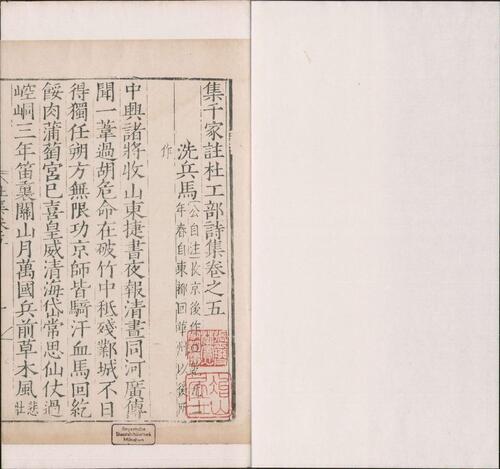 集千家註杜工部詩集卷之五
洗兵馬
公自注
京後作
年春自東都回華州以後所
作
中興諸將收山東捷書夜報清晝同河廣傳
聞一葦過胡危命在破竹中秪殘鄴城不日
得獨任朔方無限功京師皆騎汗血馬回紇
餧肉蒲萄宮已喜皇威清海岱常思仙仗過
崆峒三年笛裏關山月萬國兵前草木風
悲壯
Bayerische
Staatsbibliothek
München